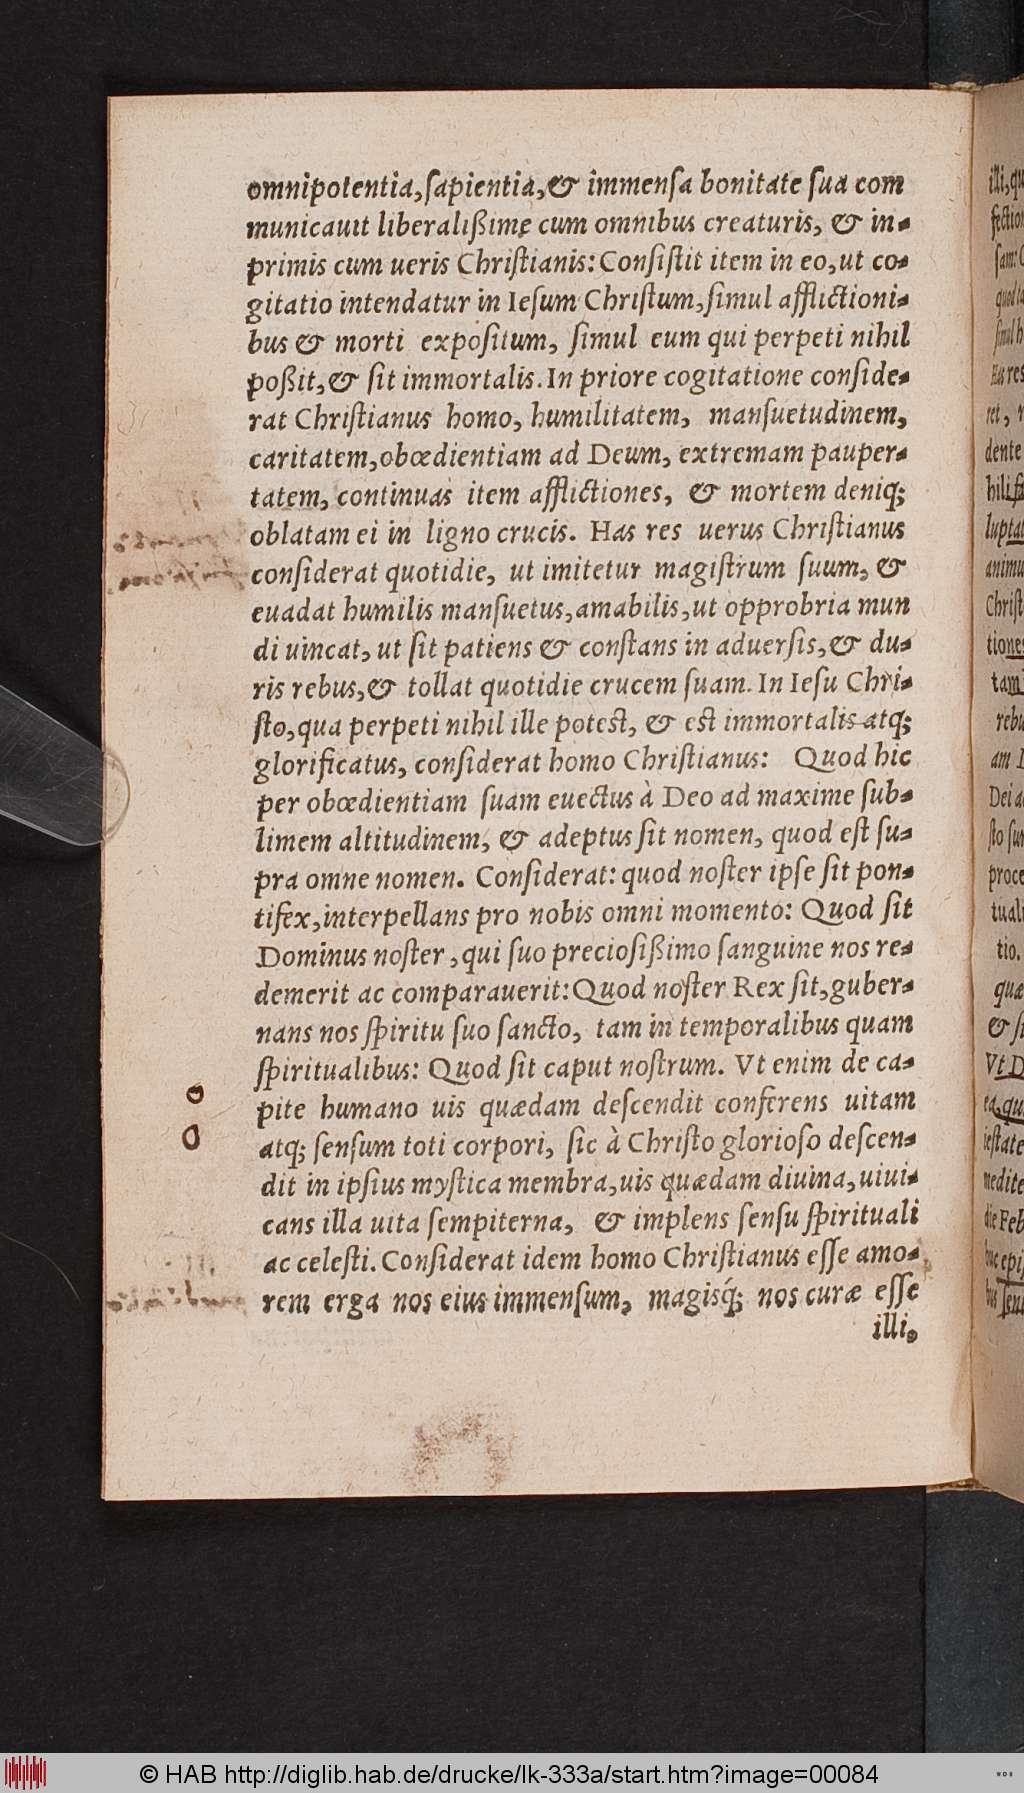 omnipotentia,ſapientia,& immenſa bonitate ſua com
municauit liberalißimę cum omnibus creaturis, & in-
primis cum ueris Chriſtianis: Conſiſtit item in eo, ut co-
gitatio intendatur in Ieſum Chriſtum, ſimul afflictioni-
bus & morti expoſitum, ſimul eum qui perpeti nihil
poßit, & ſit immortalis. In priore cogitatione conſide-
rat Chriſtianus homo, humilitatem, manſuetudinem,
caritatem, obœdientiam ad Deum, extremam pauper-
tatem, continuas item afflictiones, & mortem deniq;
oblatam ei in ligno crucis. Has res uerus Chriſtianus
conſiderat quotidie, ut imitetur magiſtrum ſuum, &
euadat humilis manſuetus, amabilis, ut opprobria mun
di uincat, ut ſit patiens & conſtans in aduerſis, & du-
ris rebus, & tollat quotidie crucem ſuam. In Ieſu Chri-
ſto, qua perpeti nihil ille poteſt, & eſt immortalis atq;
glorificatus, conſiderat homo Chriſtianus: Quod hic
per obœdientiam ſuam euectus à Deo ad maxime ſub-
limem altitudinem, & adeptus ſit nomen, quod eſt ſu-
pra omne nomen. Conſiderat: quod noſter ipſe ſit pon-
tifex, interpellans pro nobis omni momento: Quod ſit
Dominus noſter, qui ſuo precioſißimo ſanguine nos re-
demerit ac comparauerit: Quod noſter Rex ſit, guber-
nans nos ſpiritu ſuo ſancto, tam in temporalibus quam
ſpiritualibus: Quod ſit caput noſtrum. Vt enim de ca-
pite humano uis quædam deſcendit conferens uitam
atq; ſenſum toti corpori, ſic à Chriſto glorioſo deſcen-
dit in ipſius myſtica membra, uis quædam diuina, uiui-
cans illa uita ſempiterna, & implens ſenſu ſpirituali
ac celeſti. Conſiderat idem homo Chriſtianus eſſe amo-
rem erga nos eius immenſum, magisq́; nos curæ eſſe
illi.
© HAB http://diglib.hab.de/drucke/lk-333a/start.htm?image=00084